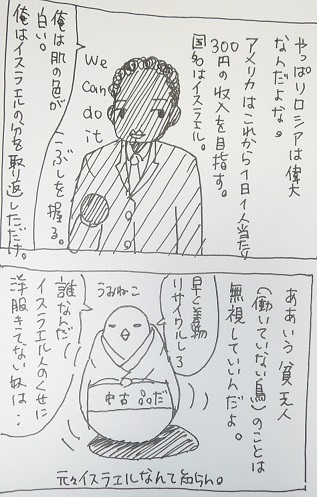 やっぱりロシアは偉大
なんだよな。
アメリカはこれから1日1人当たり
300円の収入を目指す。
国名はイスラエル。
We
can
do
it
こぶしを握る。
俺は肌の色が
白い。
俺はイスラエルの分を取り返しただけ。
ああいう貧乏人
(働いていない鳥)のことは
無視していいんだよ。
早く着物
リサイクルしろ
うみねこ
中古品だ
誰なんだ!
イスラエル人のくせに
洋服きてない奴は…
元々イスラエルなんて知らん。